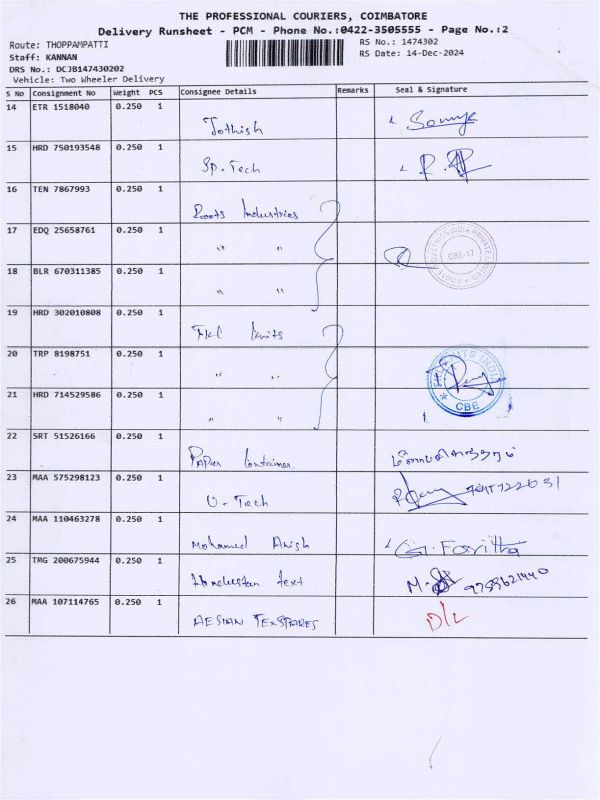 THE PROFESSIONAL COURIERS, COIMBATORE
Delivery Runsheet - PCM - Phone No.:0422-3505555 - Page No.:2
Route: THOPPAMPATTI RS No.: 1474302
Staff: KANNAN RS Date: 14-Dec-2024
DRS No.: DCJB147430202
Vehicle: Two Wheeler Delivery
S No Consignment No Weight PCS Consignee Details Remarks Seal & Signature
14 ETR 1518040 0.250 1
Jothish Sowmya
15 HRD 750193548 0.250 1
Sp. Tech
16 TEN 7867993 0.250 1
Roots Industries
17 EDQ 25658761 0.250 1
" "
CBE-17
18 BLR 670311385 0.250 1
" "
19 HRD 302010808 0.250 1
knits
20 TRP 8198751 0.250 1
" "
21 HRD 714529586 0.250 1
" "
CBE
22 SRT 51526166 0.250 1
Paper Container
23 MAA 575298123 0.250 1
U-Tech
24 MAA 110463278 0.250 1
Mohamed Anish G. Favitha
25 TMG 200675944 0.250 1
Hindustan text
26 MAA 107114765 0.250 1
AESIAN TEXSPARES D/L